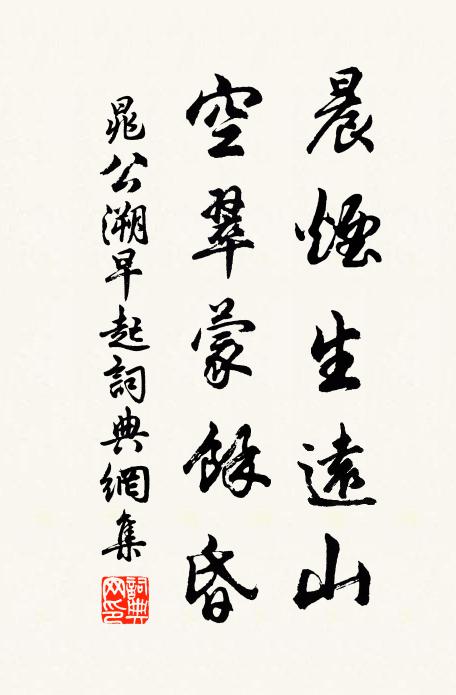 晨煙生遠山
空翠蒙餘昏
晁公溯早起詞典網集
詞典网印